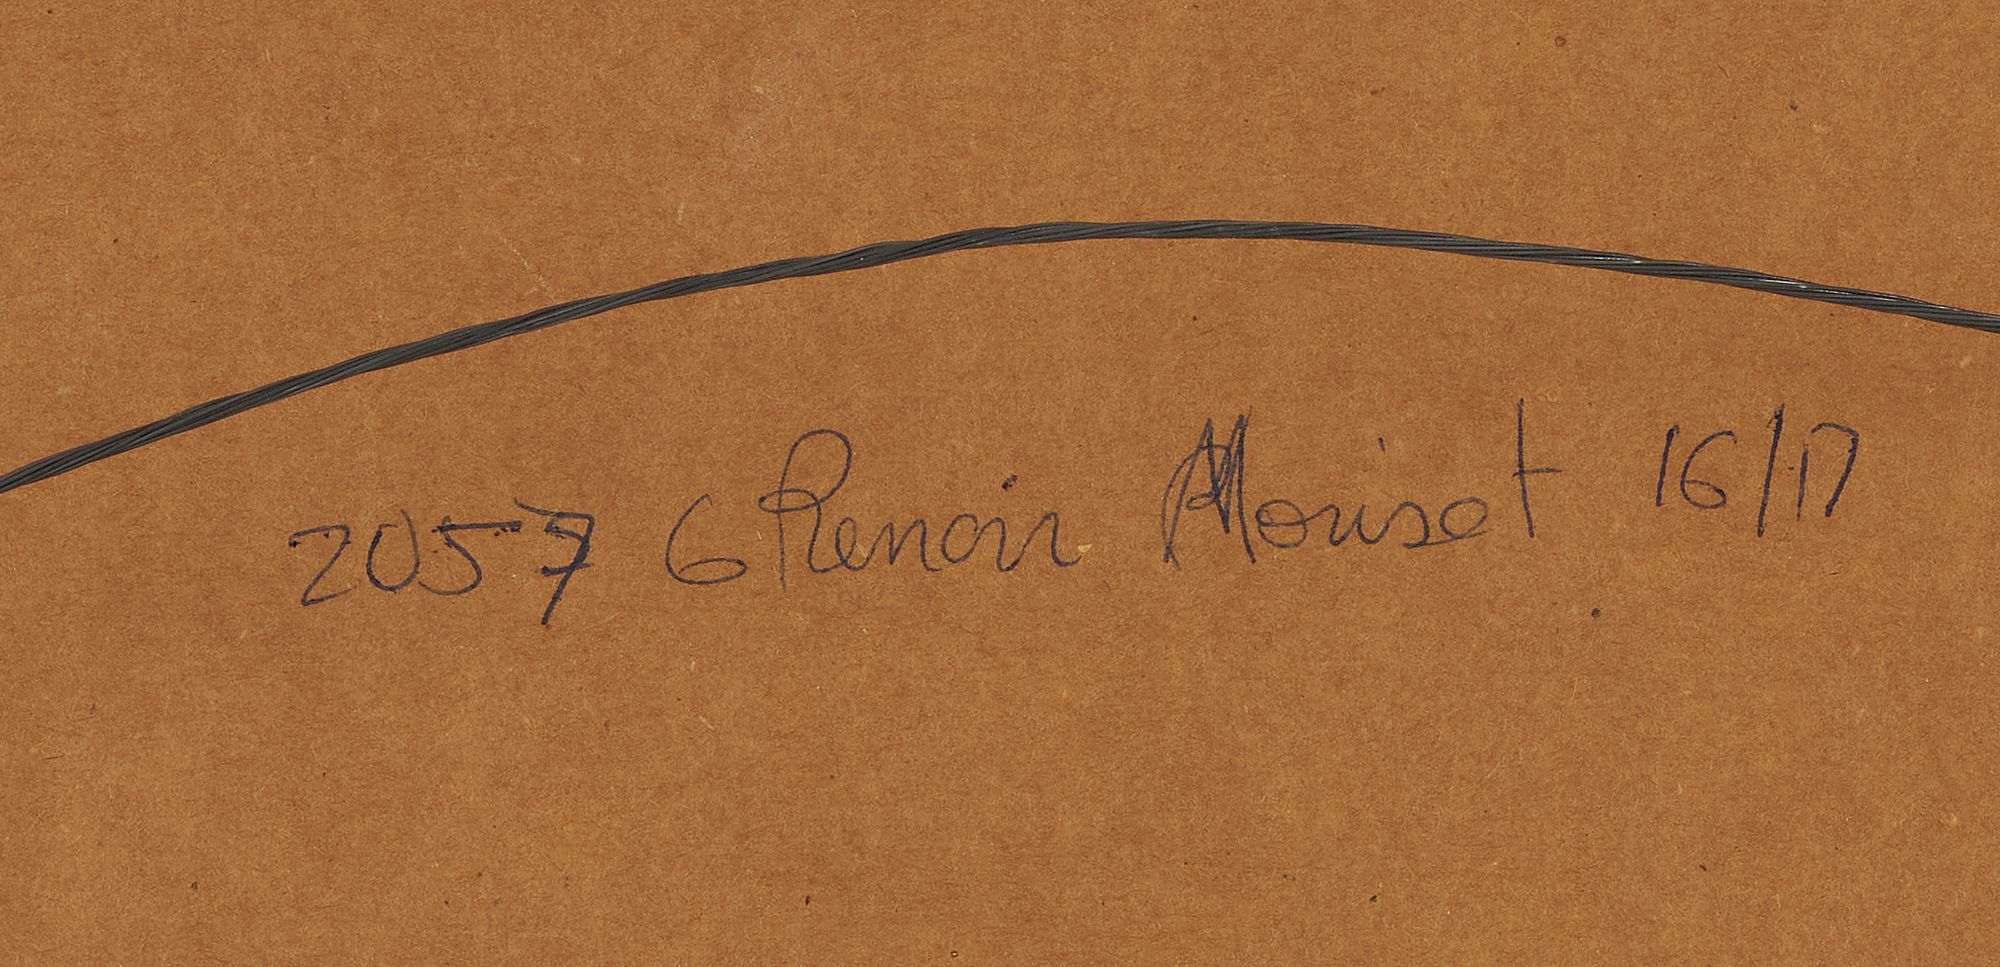 2057 6 Renoir Morisot 16/17